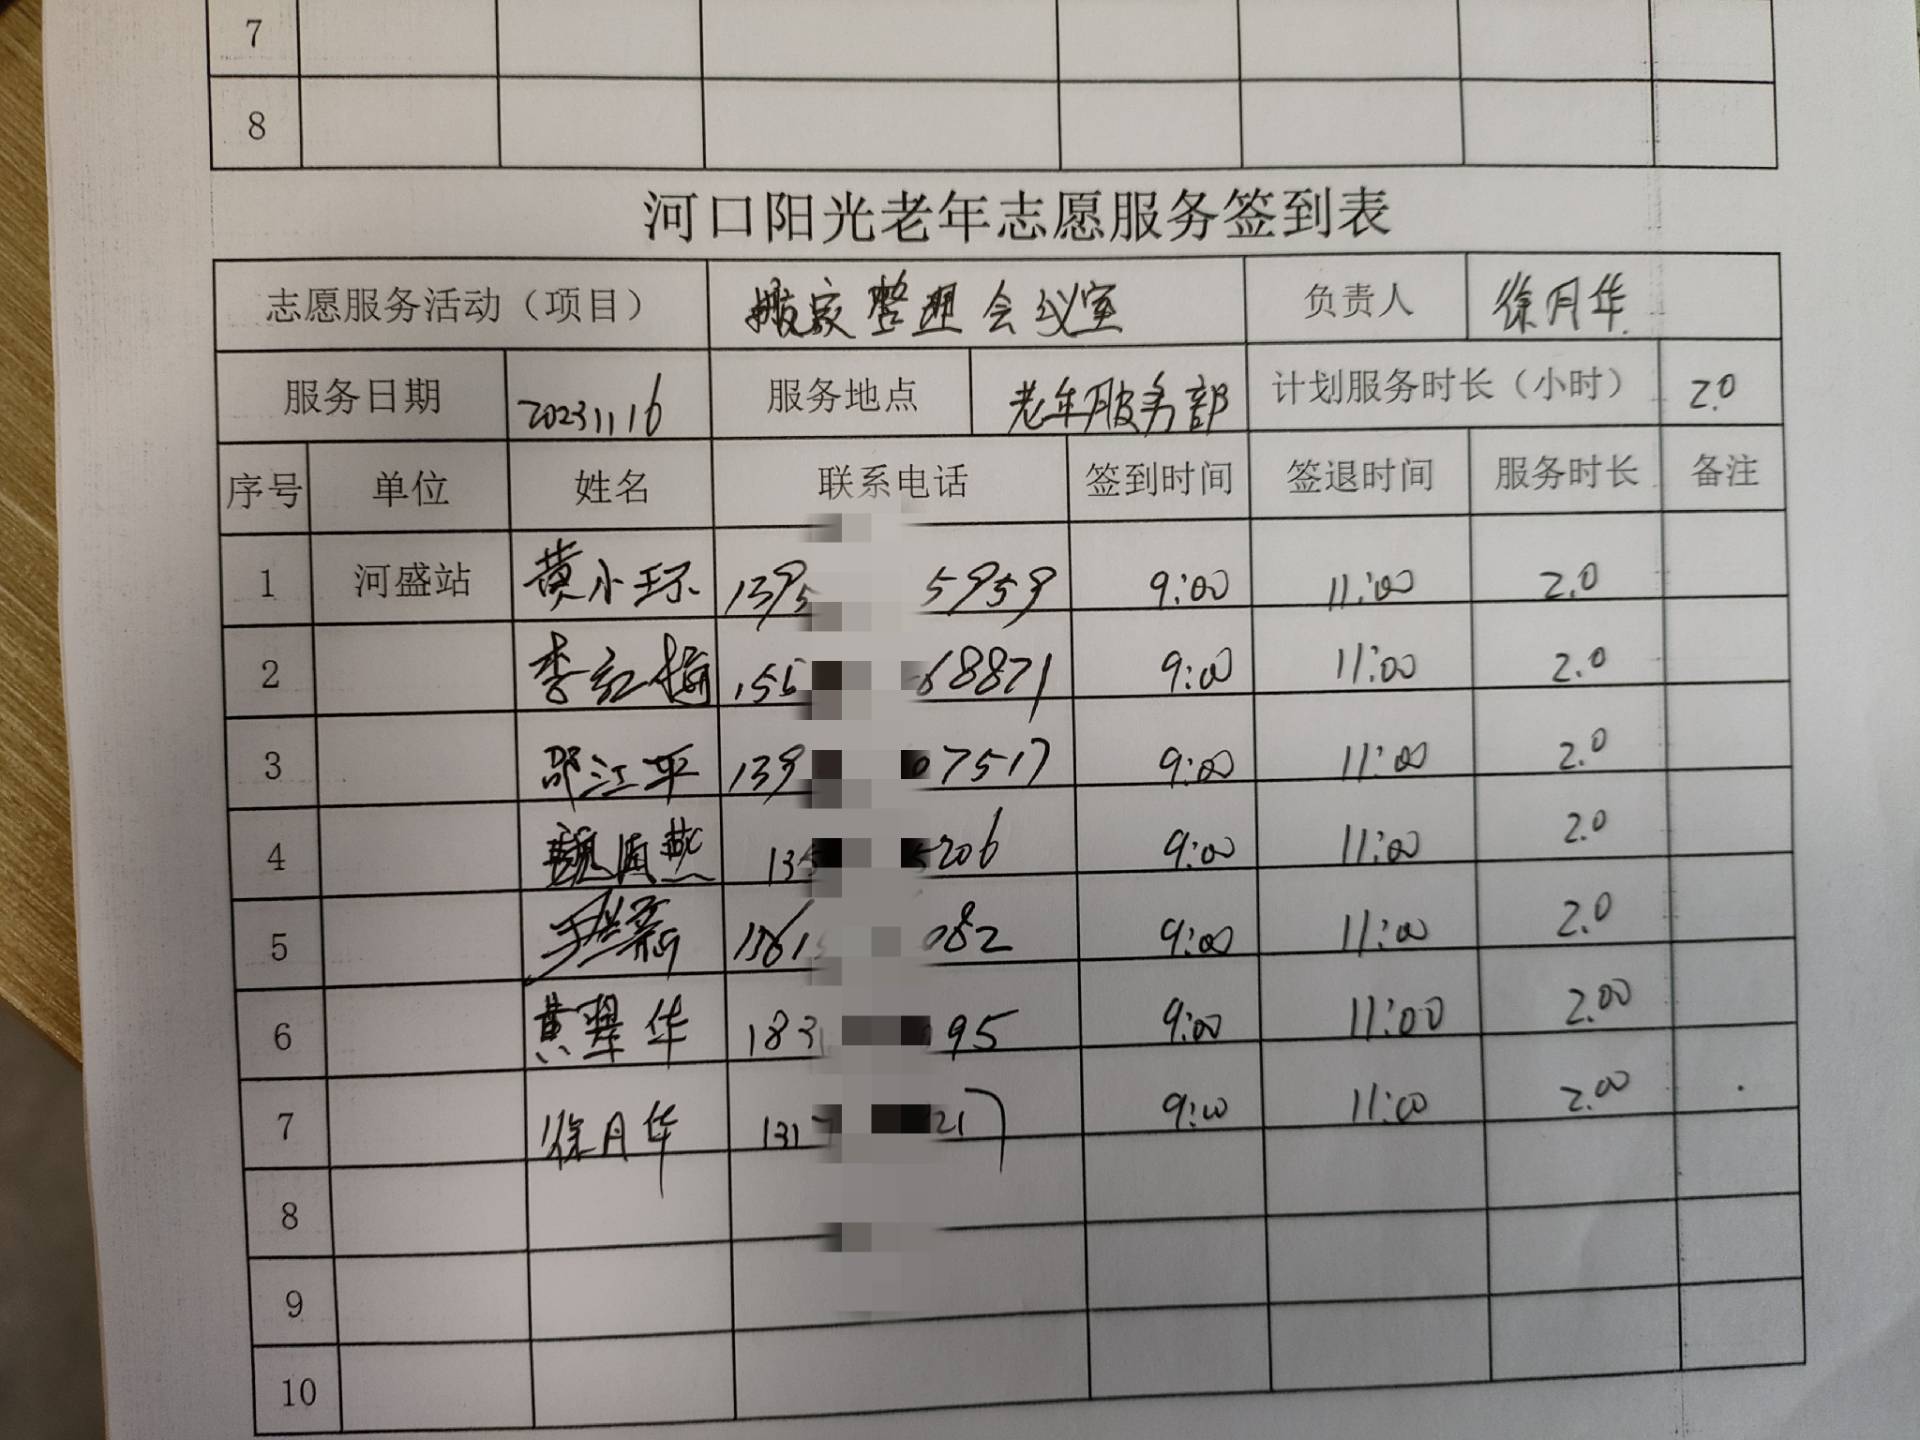 7
8
河口阳光老年志愿服务签到表
志愿服务活动（项目） 搬家整理会议室 负责人 徐月华
服务日期 20231116 服务地点 老年服务部 计划服务时长（小时） 2.0
序号 单位 姓名 联系电话 签到时间 签退时间 服务时长 备注
1 河盛站 黄小环 1395 5959 9:00 11:00 2.0
2 李红梅 155 68871 9:00 11:00 2.0
3 邵江平 139 07517 9:00 11:00 2.0
4 135 5206 9:00 11:00 2.0
5 082 9:00 11:00 2.0
6 黄翠华 183 095 9:00 11:00 2.00
7 徐月华 1317 217 9:00 11:00 2.00
8
9
10